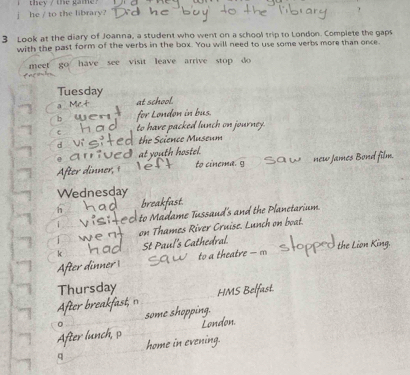 i they / the game?
j he / to the library? Did he buy to the library
3 Look at the diary of Joanna, a student who went on a school trip to London. Complete the gaps
with the past form of the verbs in the box. You will need to use some verbs more than once.
meet go have see visit leave arrive stop do
Tuesday
a Met at school.
b went for London in bus.
c had to have packed lunch on journey.
d visited the Science Museum
e arrived at youth hostel.
After dinner, f left to cinema. g saw new James Bond film.
Wednesday
h had breakfast.
i visited to Madame Tussaud's and the Planetarium.
j went on Thames River Cruise. Lunch on boat.
k had St Paul's Cathedral.
After dinner l saw to a theatre – m stopped the Lion King.
Thursday
After breakfast, n HMS Belfast.
o some shopping.
After lunch, p London.
q home in evening.